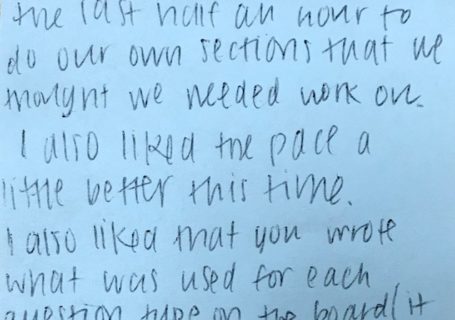 the last half an hour to
do our own sections that we
thought we needed work on.
I also liked the pace a
little better this time.
I also liked that you wrote
what was used for each
question type on the board/it